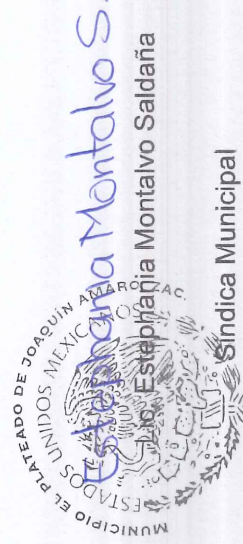 Estephania Montalvo S.
Lic. Estephania Montalvo Saldaña
Síndica Municipal
MUNICIPIO EL PLATEADO DE JOAQUÍN AMARO, ZAC.
ESTADOS UNIDOS MEXICANOS